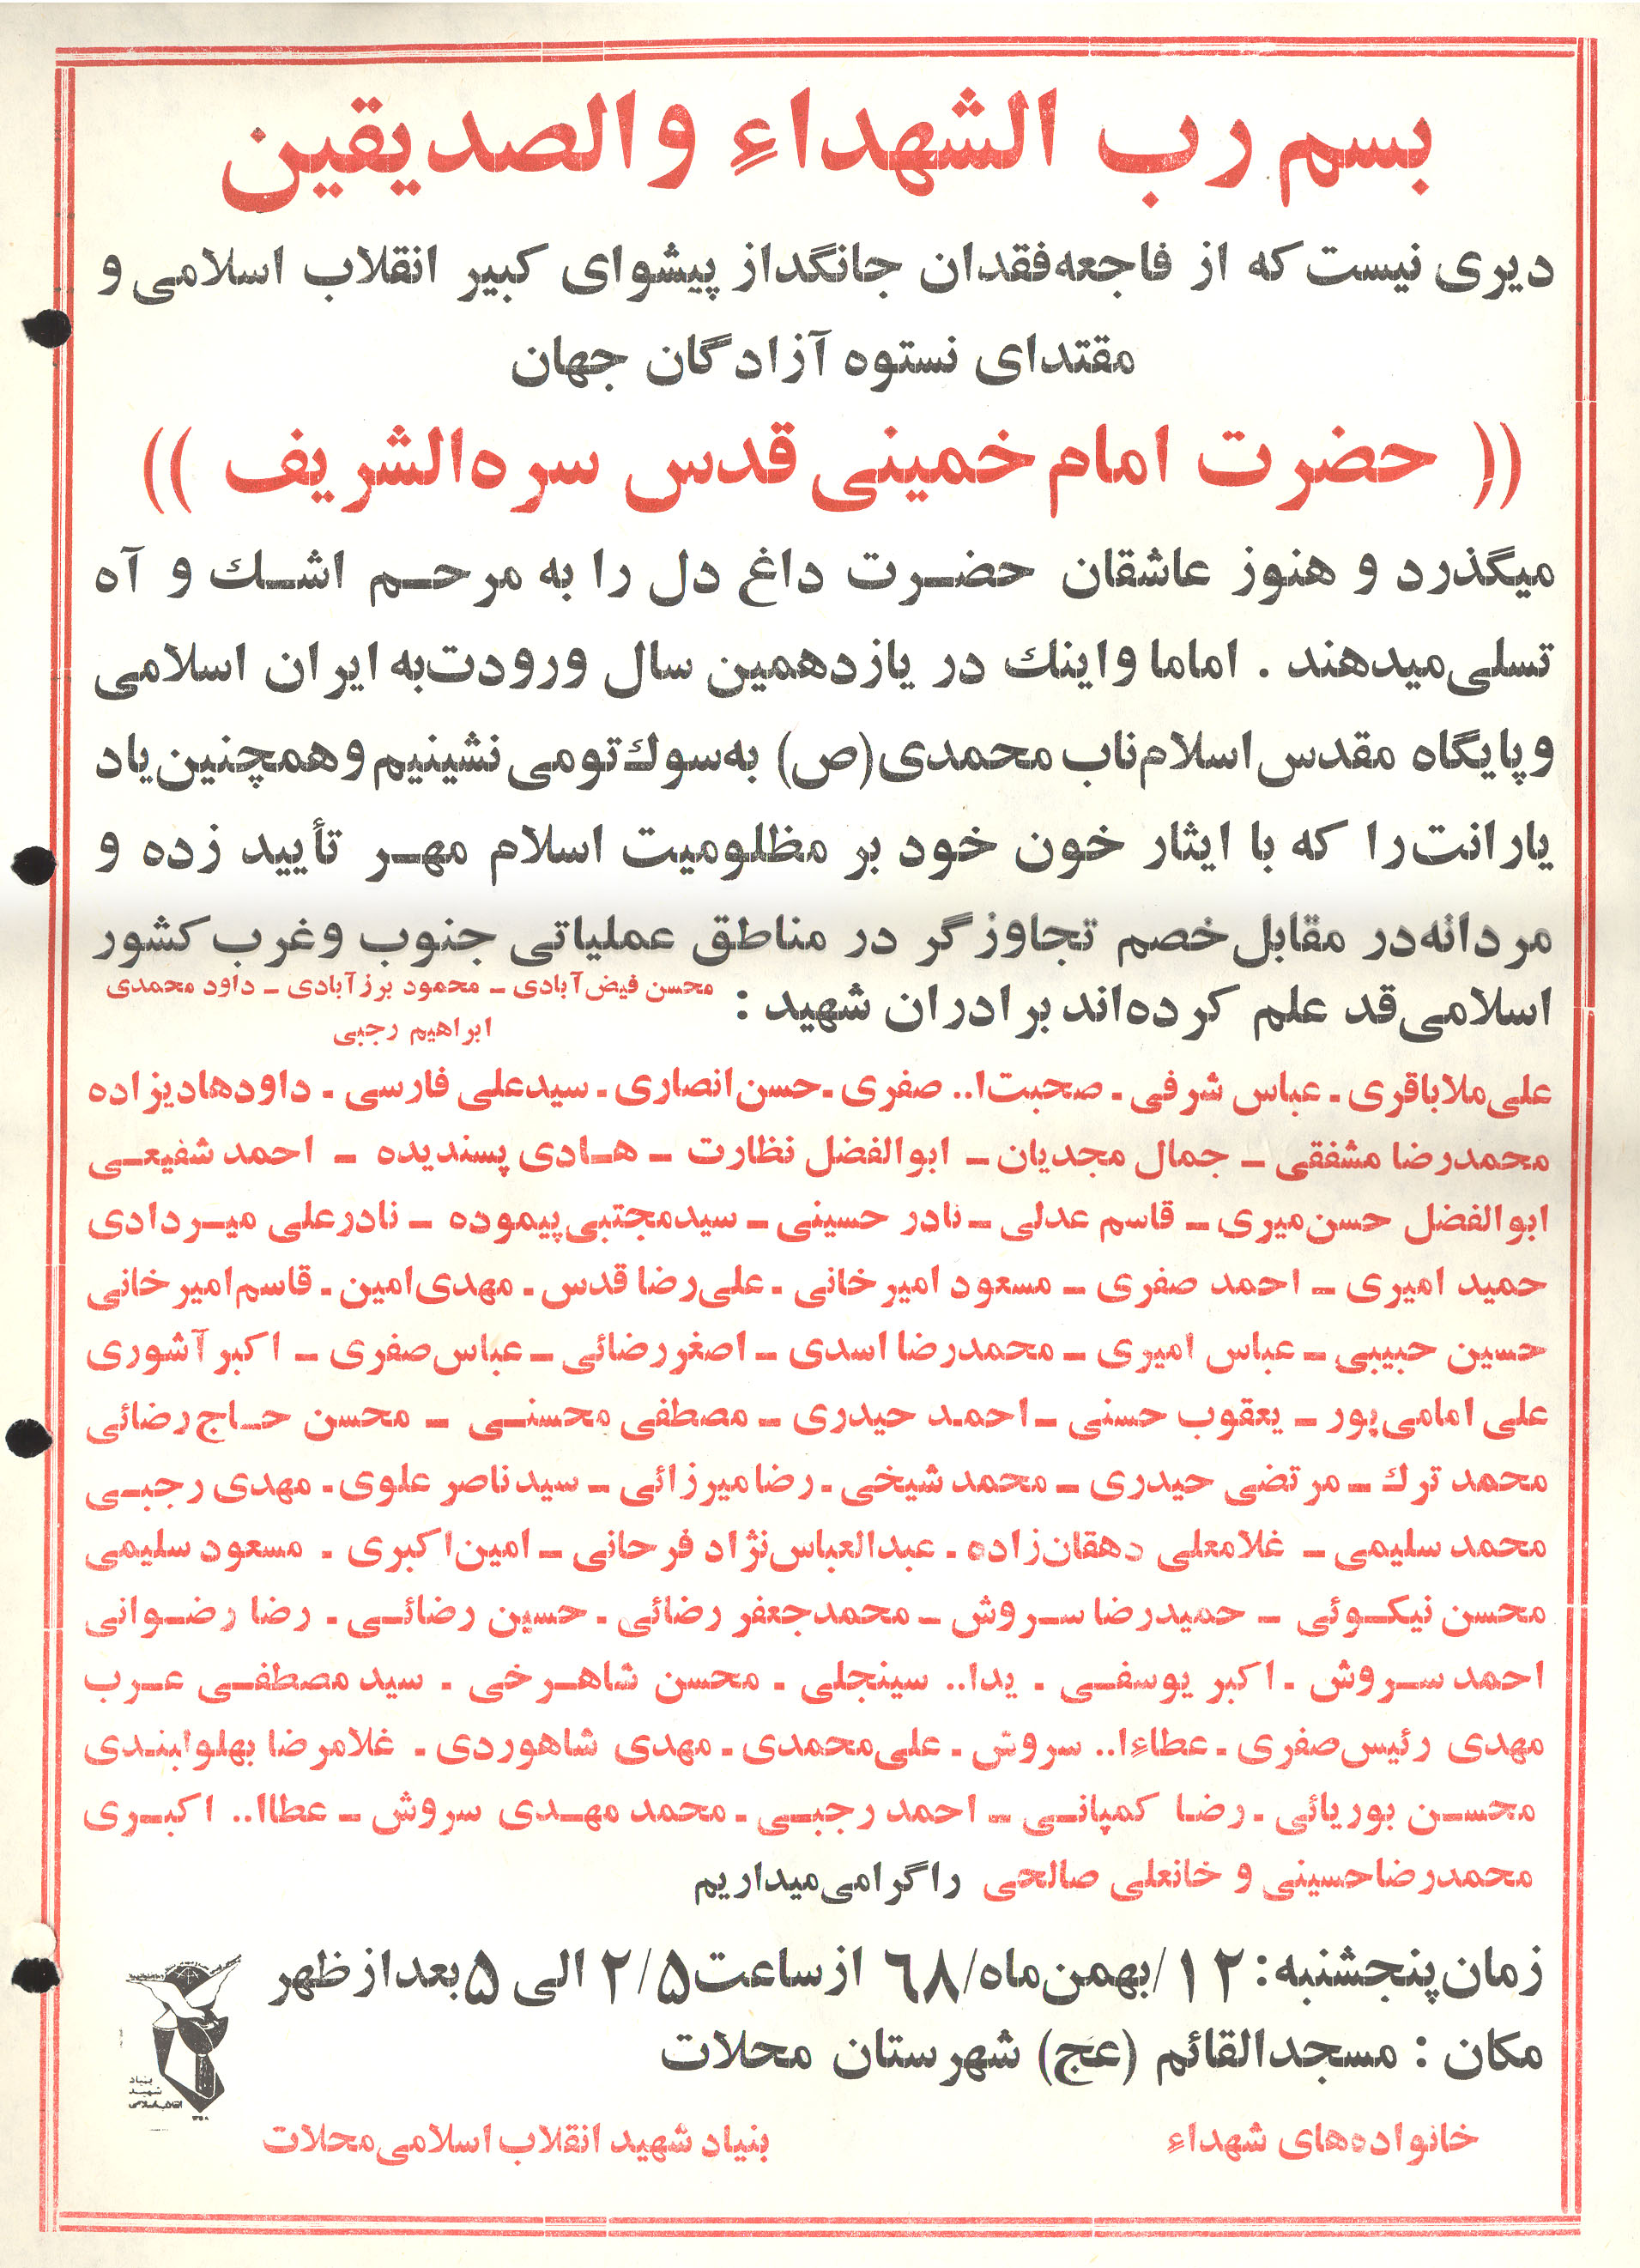 بسم رب الشهداءِ والصدیقین
دیری نیست که از فاجعه فقدان جانگداز پیشوای کبیر انقلاب اسلامی و
مقتدای نستوه آزادگان جهان
(( حضرت امام خمینی قدس سره الشریف ))
میگذرد و هنوز عاشقان حضرت داغ دل را به مرحم اشک و آه
تسلی میدهند . اماما و اینک در یازدهمین سال ورودت به ایران اسلامی
و پایگاه مقدس اسلام ناب محمدی (ص) به سوک تو می نشینیم و همچنین یاد
یارانت را که با ایثار خون خود بر مظلومیت اسلام مهر تأیید زده و
مردانه در مقابل خصم تجاوزگر در مناطق عملیاتی جنوب و غرب کشور
اسلامی قد علم کرده‌اند برادران شهید : محسن فیض آبادی ـ محمود برزآبادی ـ داود محمدی
ابراهیم رجبی
علی ملاباقری - عباس شرفی - صحبت ا.. صفری - حسن انصاری - سید علی فارسی - داود هادیزاده
محمدرضا مشفقی ـ جمال مجدیان ـ ابوالفضل نظارت ـ هادی پسندیده ـ احمد شفیعی
ابوالفضل حسن میری ـ قاسم عدلی ـ نادر حسینی ـ سید مجتبی پیموده ـ نادرعلی میردادی
حمید امیری ـ احمد صفری ـ مسعود امیرخانی - علی رضا قدس - مهدی امین - قاسم امیرخانی
حسین حبیبی ـ عباس امیری ـ محمدرضا اسدی ـ اصغر رضائی ـ عباس صفری ـ اکبر آشوری
علی امامی پور ـ یعقوب حسنی ـ احمد حیدری ـ مصطفی محسنی ـ محسن حاج رضائی
محمد ترک ـ مرتضی حیدری ـ محمد شیخی - رضا میرزائی ـ سید ناصر علوی - مهدی رجبی
محمد سلیمی ـ غلامعلی دهقان زاده - عبدالعباس نژاد فرحانی ـ امین اکبری - مسعود سلیمی
محسن نیکوئی ـ حمیدرضا سروش ـ محمد جعفر رضائی - حسین رضائی - رضا رضوانی
احمد سروش - اکبر یوسفی - یدا.. سینجلی - محسن شاهرخی - سید مصطفی عرب
مهدی رئیس صفری - عطاءِا.. سروش - علی محمدی - مهدی شاهوردی - غلامرضا بهلولبندی
محسن بوریائی - رضا کمپانی ـ احمد رجبی - محمد مهدی سروش ـ عطاا.. اکبری
محمدرضا حسینی و خانعلی صالحی را گرامی میداریم
زمان پنجشنبه : ۱۲/بهمن ماه/۶۸ از ساعت ۲/۵ الی ۵ بعد از ظهر
مکان : مسجد القائم (عج) شهرستان محلات
بنیاد
شهید
انقلاب اسلامی
خانواده‌های شهداءِ
بنیاد شهید انقلاب اسلامی محلات